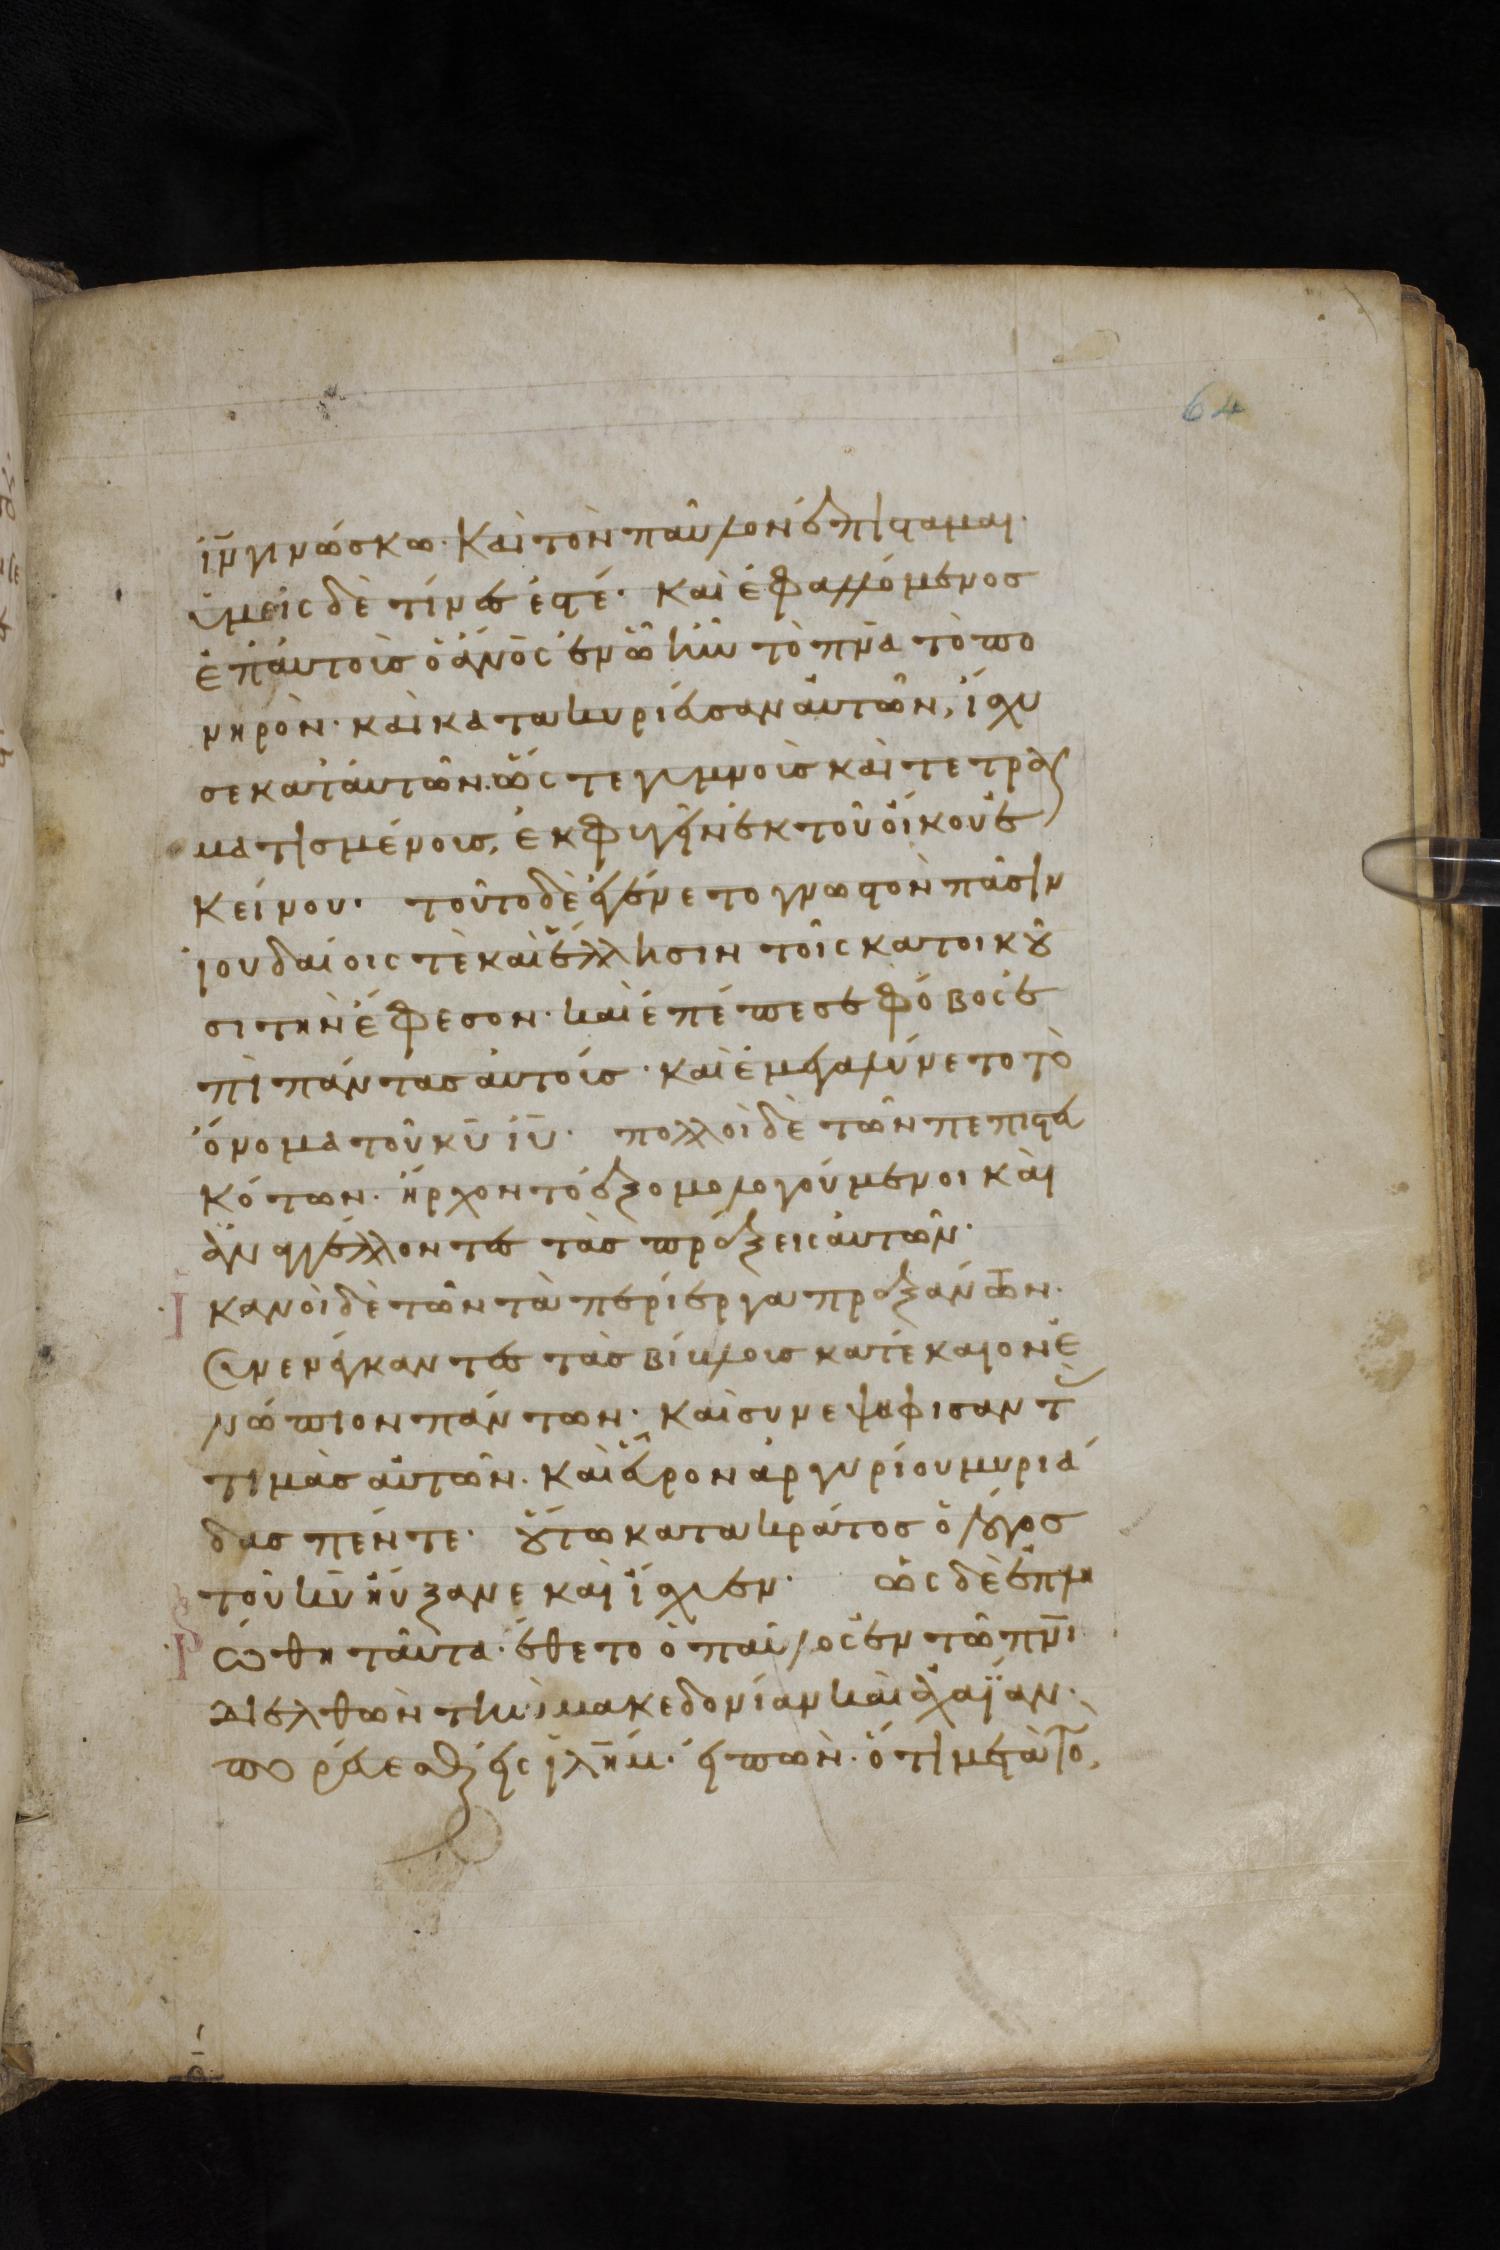 64
ιν̅ γινώσκω· καὶ τὸν παῦλον ἐπίσταμαι·
ὑμεῖς δὲ τίνες ἐστέ· καὶ ἐφαλλόμενος
ἐπ' αὐτοὺς ὁ ἄν̅ος ἐν ὧ ἦν τὸ πν̅α τὸ πο
νηρὸν· καὶ κατακυριεύσαν αὐτῶν, ἴσχυ
σε κατ' αὐτῶν· ὥστε γυμνοὺς καὶ τετραυ
ματισμένους, ἐκφυγεῖν ἐκ τοῦ οἴκου ἐ
κείνου· τοῦτο δὲ ἐγένετο γνωστὸν πᾶσιν
ἰουδαίοις τὲ καὶ ἕλλησιν τοῖς κατοικοῦ
σι τὴν ἔφεσον· καὶ ἐπέπεσε φόβος ἐ
πὶ πάντας αὐτούς· καὶ ἐμεγαλύνετο τὸ
ὄνομα τοῦ κ̅υ ι̅υ· πολλοὶ δὲ τῶν πεπιστευ
κότων· ἤρχοντο ἐξομολογούμενοι καὶ
ἀναγγέλλοντες τὰς πράξεις αὐτῶν·
Ἱκανοὶ δὲ τῶν τὰ περίεργα πραξάντων·
συνενέγκαντες τὰς βίβλους κατέκαιον ἐ
νώπιον πάντων· καὶ συνεψήφισαν τὰς
τιμὰς αὐτῶν· καὶ εὗρον ἀργυρίου μυριά
δας πέντε· οὕτω κατακράτος ὁ λόγος
τοῦ κ̅υ ηὔξανε καὶ ἴσχυεν· ὡς δὲ ἐπλη
ρώθη ταῦτα· ἔθετο ὁ παῦλος ἐν τῶ πν̅ι
διελθὼν τὴν μακεδονίαν καὶ ἀχαΐαν·
πορεύεσθαι εἰς ἱλ̅ημ· εἰπὼν· ὅτι μετὰ τὸ